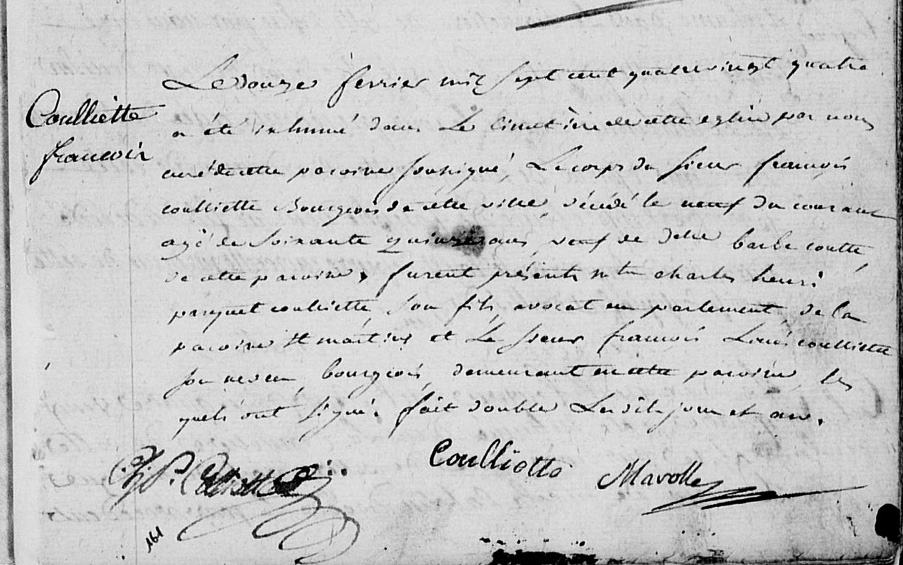 Coulliette
francois
Le douze fevrier mil sept cent quatrevingt quatre
a été inhumé dans Le cimetière de cette eglise par nous
curé de cette paroisse soussigné, Le corps du sieur françois
coulliette Bourgeois de cette ville décédé le neuf du courant
agé de soixante quinze ans veuf de delle barbe coutte
de cette paroisse, furent présents Me charles henri
pasquet coulliette son fils avocat en parlement de la
paroisse st martin et Le sieur françois Louis coulliette
son neveu bourgeois demeurant en cette paroisse, les
quels ont signé fait double Les dits jour et an.
Coulliette
Marolle
161